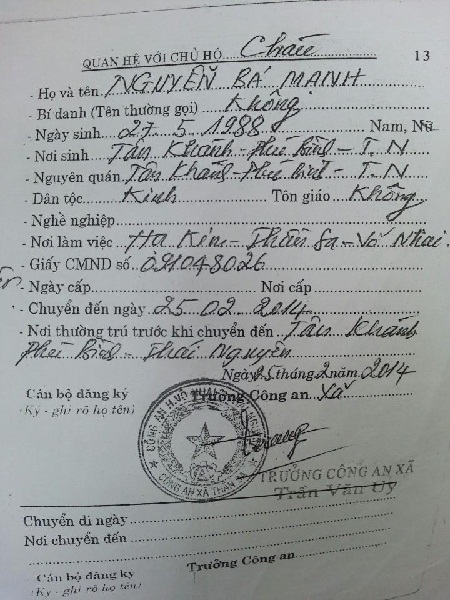 QUAN HỆ VỚI CHỦ HỘ Cháu
13
- Họ và tên NGUYỄN BÁ MANH
- Bí danh (Tên thường gọi) Không
- Ngày sinh 27. 5. 1988 Nam, Nữ
- Nơi sinh Tân Khánh - Phú Bình - T. N
- Nguyên quán Tân Khánh - Phú Bình - T. N
- Dân tộc Kinh Tôn giáo Không
- Nghề nghiệp
- Nơi làm việc Hạ Kim - Thần Sa - Võ Nhai
- Giấy CMND số 091048026
- Ngày cấp Nơi cấp
- Chuyển đến ngày 25. 02. 2014
- Nơi thường trú trước khi chuyển đến Tân Khánh
Phú Bình - Thái Nguyên
Ngày 25 tháng 2 năm 2014
Cán bộ đăng ký Trưởng Công an xã
(Ký - ghi rõ họ tên)
CÔNG AN XÃ THẦN SA
TRƯỞNG CÔNG AN XÃ
Trần Văn Uy
Chuyển đi ngày
Nơi chuyển đến
Trưởng Công an
Cán bộ đăng ký
(Ký - ghi rõ họ tên)